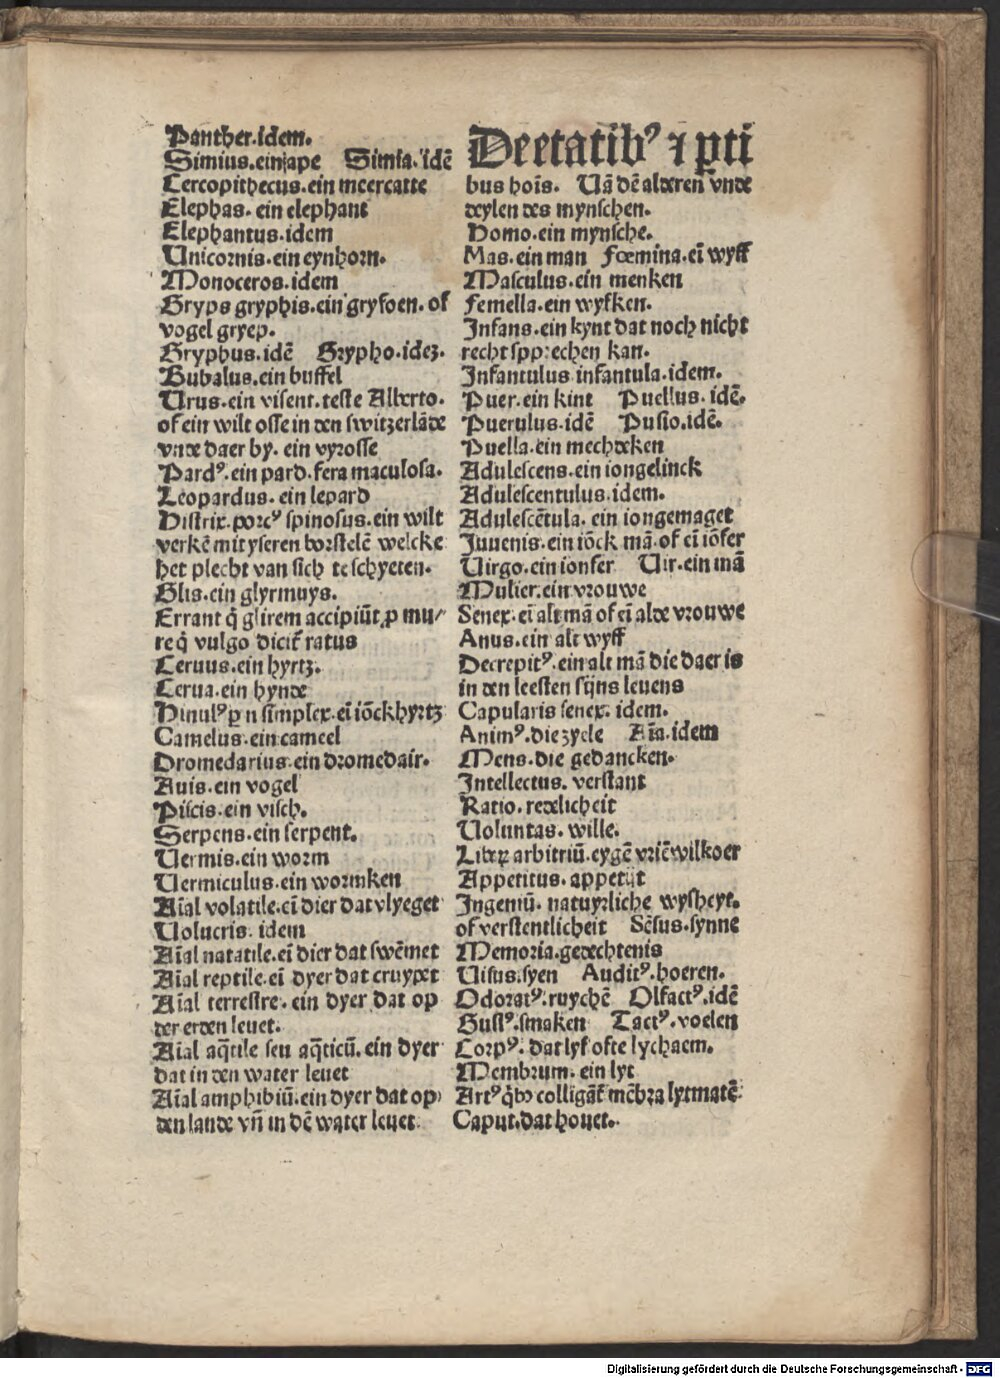 Panther.idem.
Simius.ein ape Simia.idē
Cercopithecus.ein meercatte
Elephas.ein elephant
Elephantus.idem
Unicornis.ein eynhorn.
Monoceros.idem
Gryps gryphis.ein gryfoen.of
vogel gryep.
Gryphus.idē Grypho.ideꝫ.
Bubalus.ein buffel
Urus.ein visent.teste Alberto.
of ein wilt osse in den switzerlāde
vnde daer by.ein vyrosse
Pardꝰ.ein pard.fera maculosa.
Leopardus.ein lepard
Histrix.porcꝰ spinosus.ein wilt
verkē mit yseren borstelē welcke
het plecht van sich te schyeten.
Glis.ein glyrmuys.
Errant q̄ glirem accipiūt ꝓ mu/
re q̄ vulgo dicit̄ ratus
Ceruus.ein hyrtz.
Cerua.ein hynde
Hinulꝰ ꝑ n simplex.eī iōckhyrtz
Camelus.ein cameel
Dromedarius.ein dromedair.
Auis.ein vogel
Piscis.ein visch.
Serpens.ein serpent.
Uermis.ein worm
Uermiculus.ein wormken
Aīal volatile.eī dier dat vlyeget
Uolucris.idem
Aīal natatile.eī dier dat swēmet
Aīal reptile.eī dyer dat cruypet
Aīal terrestre.ein dyer dat op
der erden leuet.
Aīal aq̄tile seu aq̄ticū.ein dyer
dat in den water leuet
Aīal amphibiū.ein dyer dat op
den lande vn̄ in dē water leuet
De etatibꝰ ⁊ ꝑti
bus hoīs. Uā dē alderen vnde
deylen des mynschen.
Homo.ein mynsche.
Mas.ein man Foemina.eī wyff
Masculus.ein menken
Femella.ein wyfken.
Infans.ein kynt dat noch nicht
recht spprechen kan.
Infantulus infantula.idem.
Puer.ein kint Puellus.idē.
Puerulus.idē Pusio.idē.
Puella.ein mechdeken
Adulescens.ein iongelinck
Adulescentulus.idem.
Adulescētula.ein iongemaget
Juuenis.ein iōck mā.of eī iōfer
Uirgo.ein ionfer Uir.ein mā
Mulier.ein vrouwe
Senex.eī alt mā of eī alde vrouwe
Anus.ein alt wyff
Decrepitꝰ.ein alt mā die daer is
in den leesten sijns leuens
Capularis senex.idem.
Animꝰ.die zyele Aīa.idem
Mens.die gedancken.
Intellectus.verstant
Ratio.redelicheit
Uoluntas.wille.
Liberꝝ arbitriū.eygē vriēwilkoer
Appetitus.appetijt
Ingeniū.natuyrliche wysheyt.
of verstentlicheit Sēsus.synne
Memoria.gedechtenis
Uisus.syen Auditꝰ.hoeren.
Odoratꝰ.ruychē Olfactꝰ.idē
Gustꝰ.smaken Tactꝰ.voelen
Corpꝰ.dat lyf ofte lychaem.
Membrum.ein lyt
Artꝰ q̄bꝰ colligāt̄ mēbra lytmatē
Caput.dat houet.
Digitalisierung gefördert durch die Deutsche Forschungsgemeinschaft - DFG